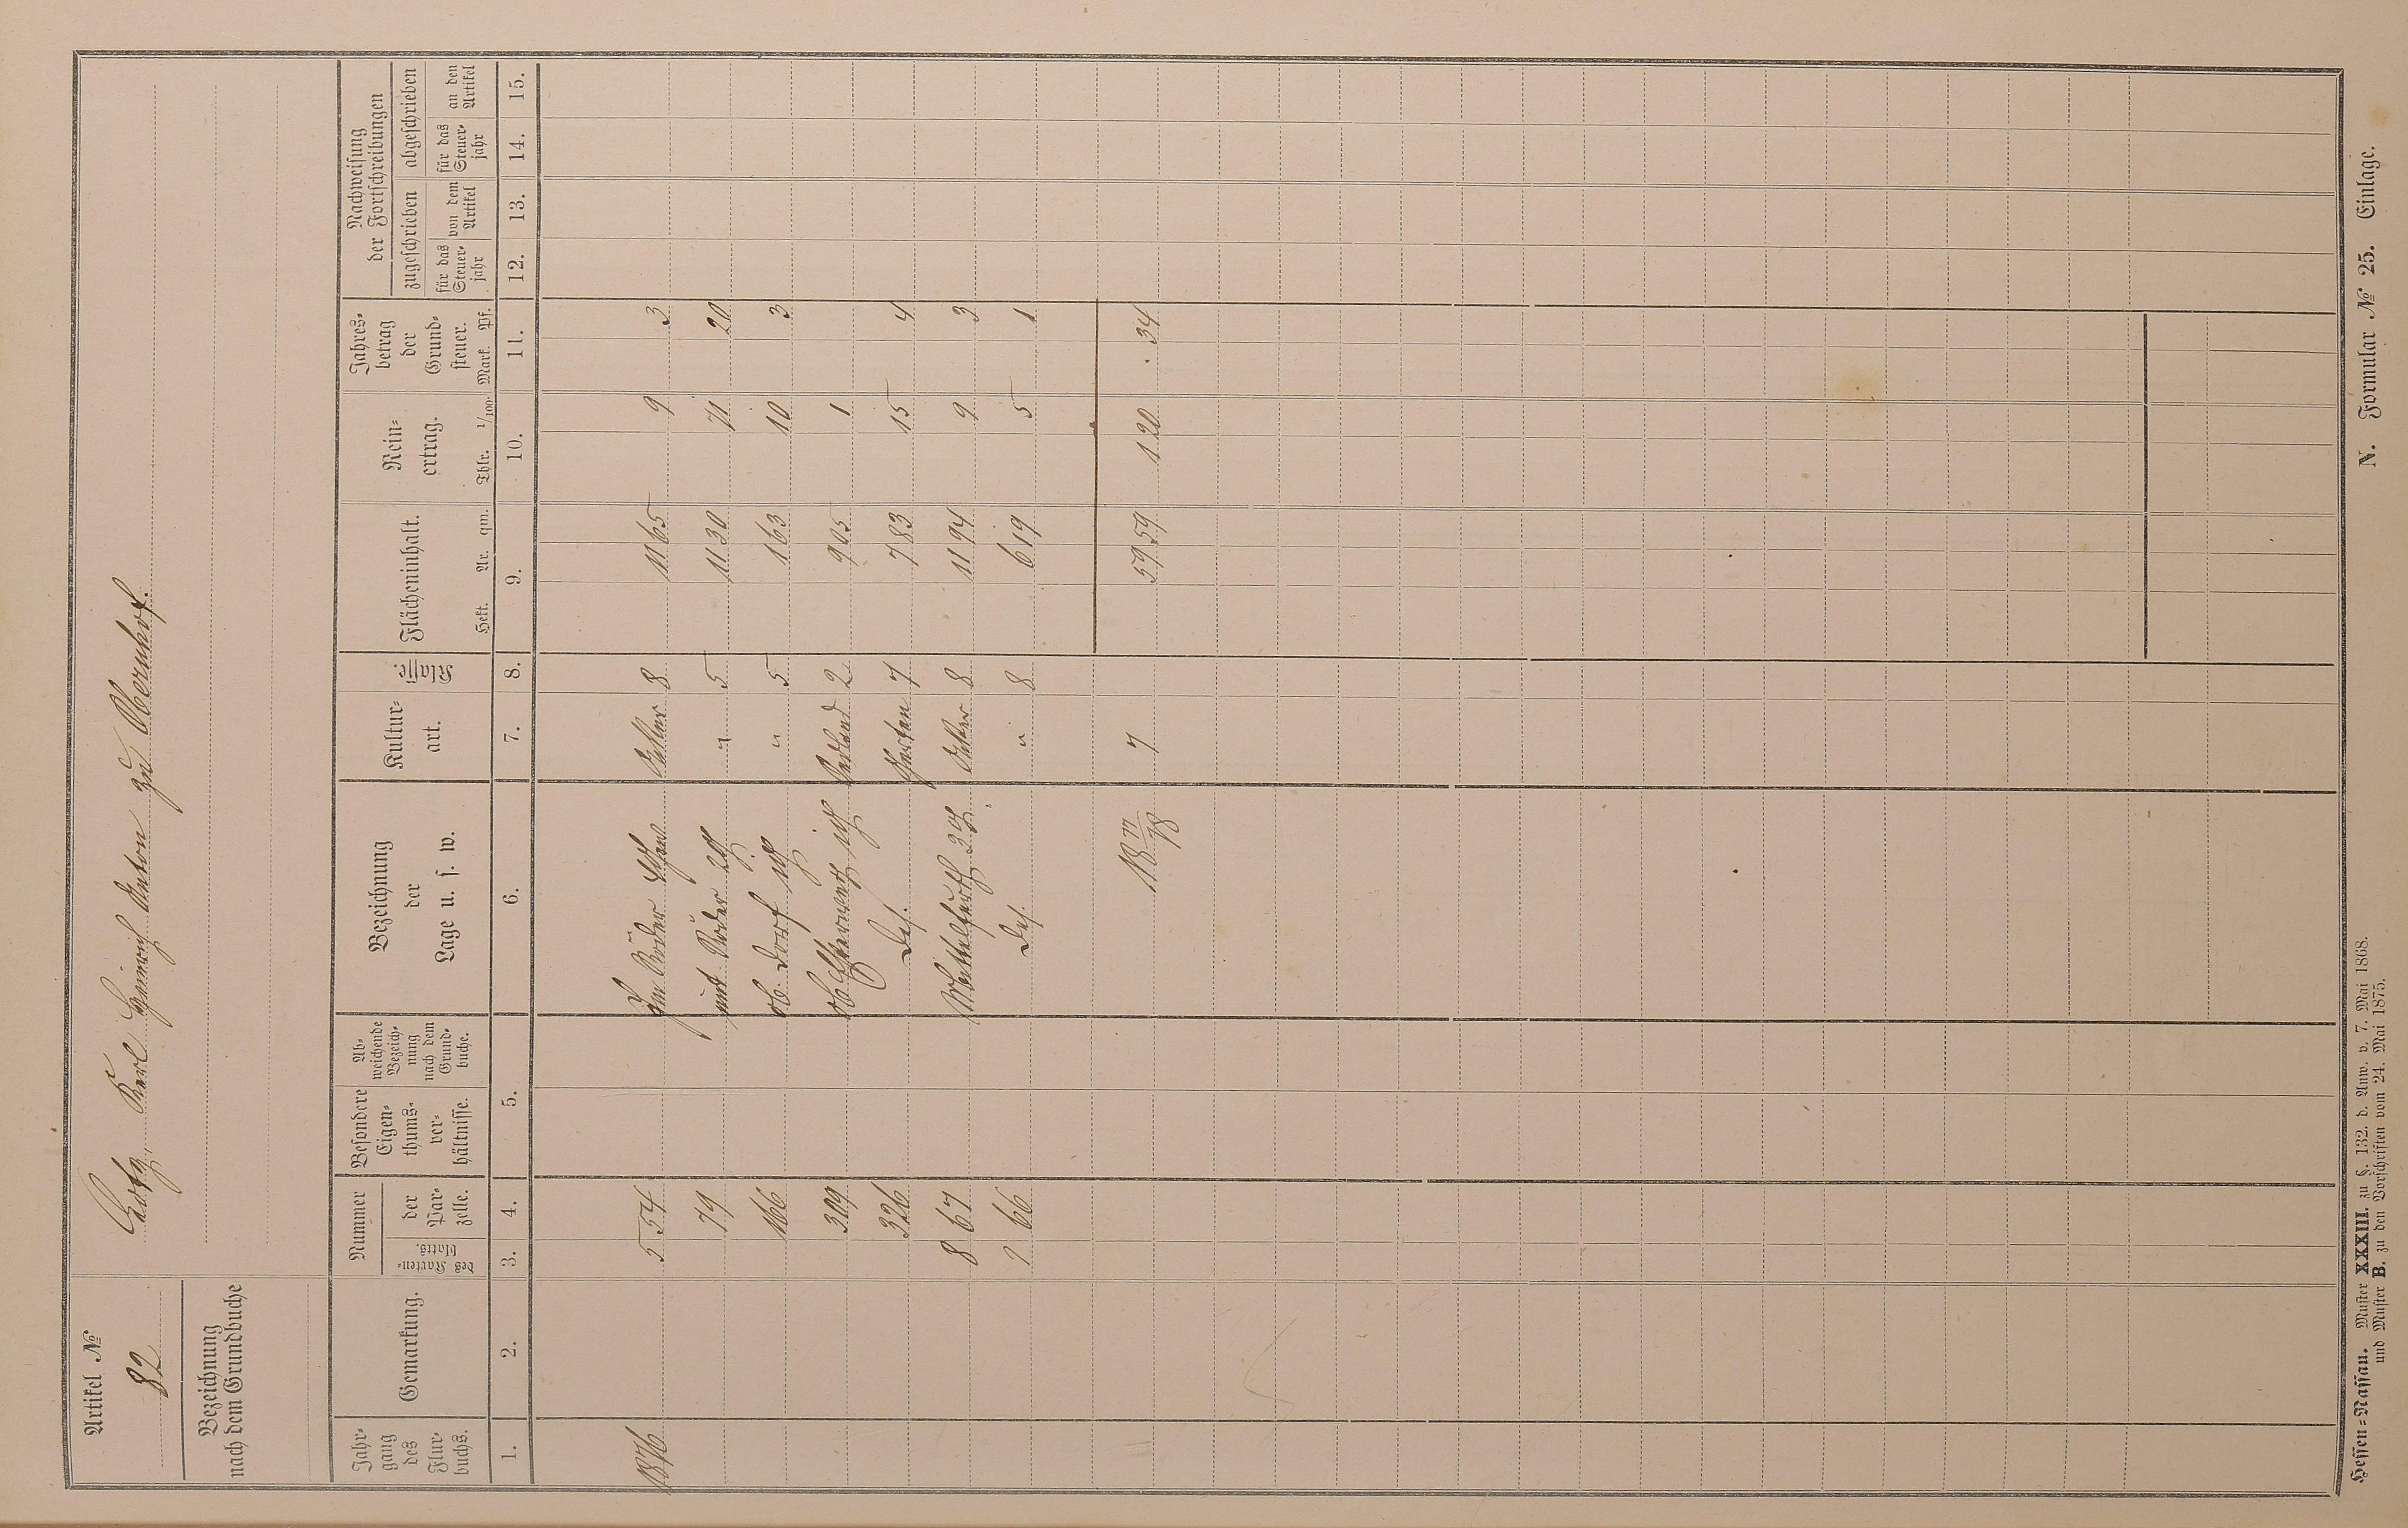 Artikel №
82
Bezeichnung
nach dem Grundbuche
Karl Heinrich Anton zu Obernhof.
Jahr-
gang
des
Flur-
buchs.
Gemarkung.
Nummer
des Karten-
blatts.
der
Par-
zelle.
Besondere
Eigen-
thums-
ver-
hältnisse.
Ab-
weichende
Bezeich-
nung
nach dem
Grund-
buche.
Bezeichnung
der
Lage u. s. w.
Kultur-
art.
Klasse.
Flächeninhalt.
Hekt. Ar. qm.
Rein-
ertrag.
Thlr. 1/100.
Jahres-
betrag
der
Grund-
steuer.
Mark. Pf.
Nachweisung
der Fortschreibungen
zugeschrieben
abgeschrieben
für das
Steuer-
jahr
von dem
Artikel
für das
Steuer-
jahr
an den
Artikel
1. 2. 3. 4. 5. 6. 7. 8. 9. 10. 11. 12. 13. 14. 15.
1876 5 54 Röder Acker 8 11 65 9 3
79 Röder 2 " 5 11 30 71 20
166 ob. Dorf " 5 1 63 10 3
309 Oedland 2 9 05 1
326 Des. Garten 7 7 83 15 4
8 67 Acker 8 11 94 9 3
66 Des. " 8 6 19 5 1
18 77/78 7 59 59 1 20 . 34
Hessen-Nassau. Muster XXXIII. zu §. 132. d. Anw. v. 7. Mai 1868.
und Muster B. zu den Vorschriften vom 24. Mai 1875.
N. Formular № 25. Einlage.